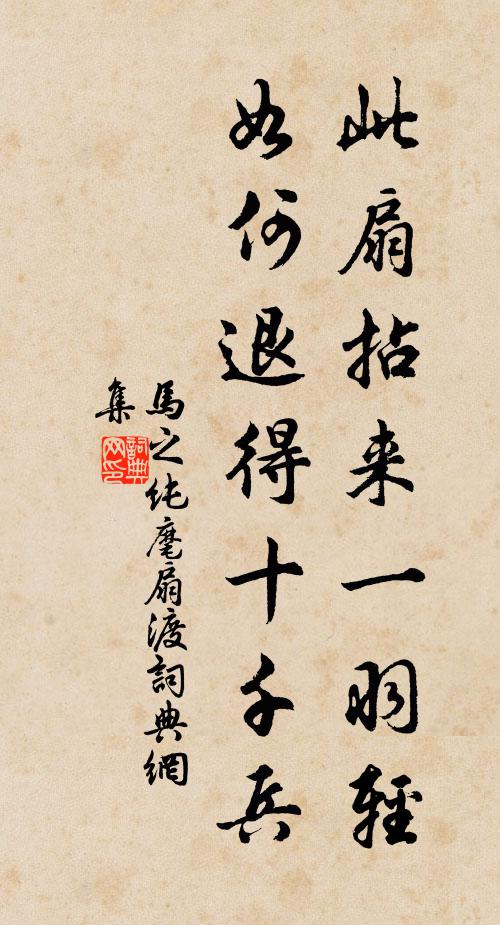 此扇拈来一羽輕
如何退得十千兵
馬之纯麾扇渡詞典網
集
詞典
网印